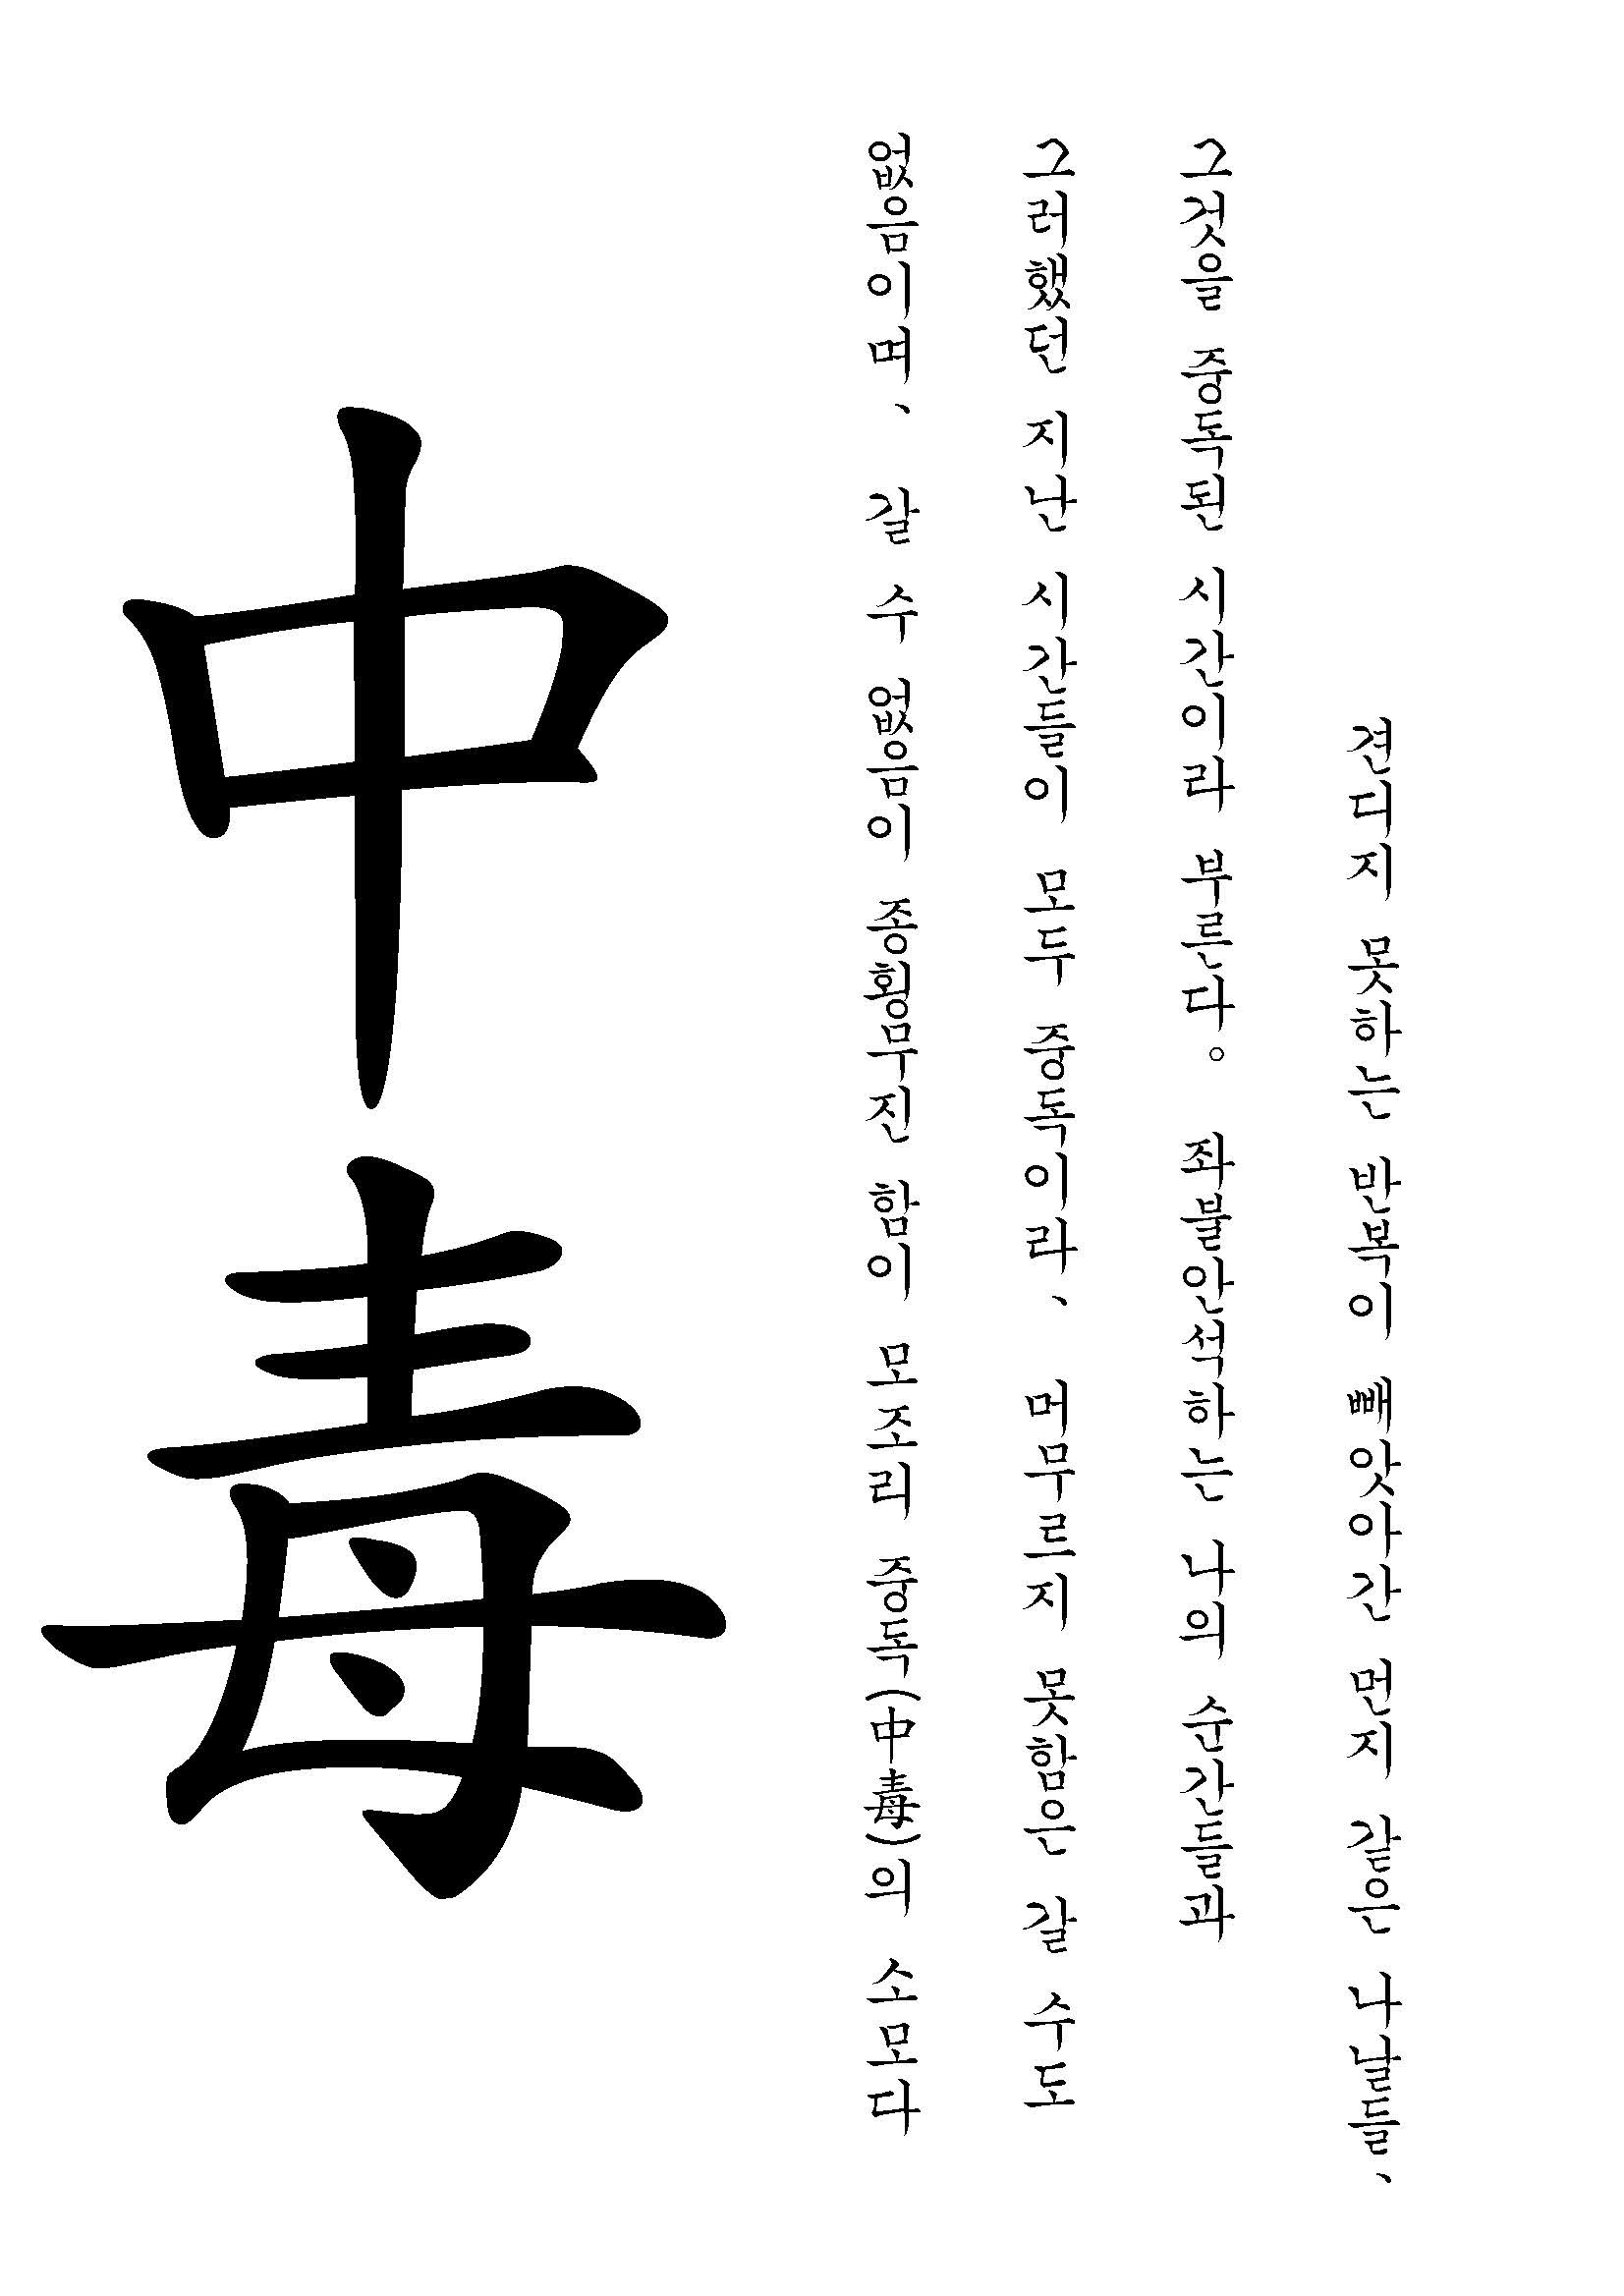 견디지 못하는 반복이 빼앗아간 먼지 같은 나날들、
그것을 중독된 시간이라 부른다。 좌불안석하는 나의 순간들과
그러했던 지난 시간들이 모두 중독이라、 머무르지 못함은 갈 수도
없음이며、 갈 수 없음이 종횡무진 함이 모조리 중독(中毒)의 소모다
中毒